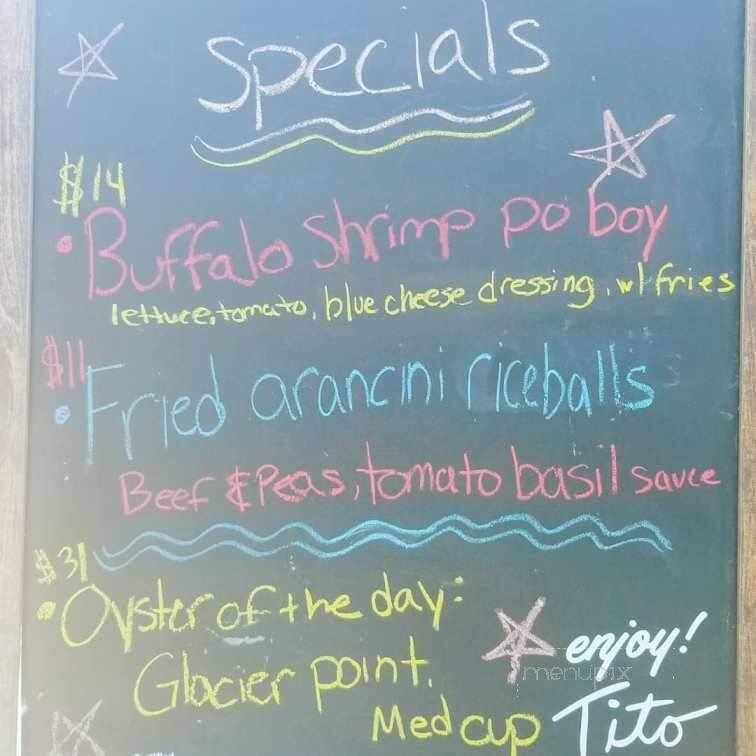 Specials
$14
• Buffalo Shrimp po boy
lettuce, tomato, blue cheese dressing, w/ fries
$11
• Fried arancini riceballs
Beef & Peas, tomato basil sauce
$31
• Oyster of the day:
Glacier point.
Med cup
enjoy!
menupix
Tito